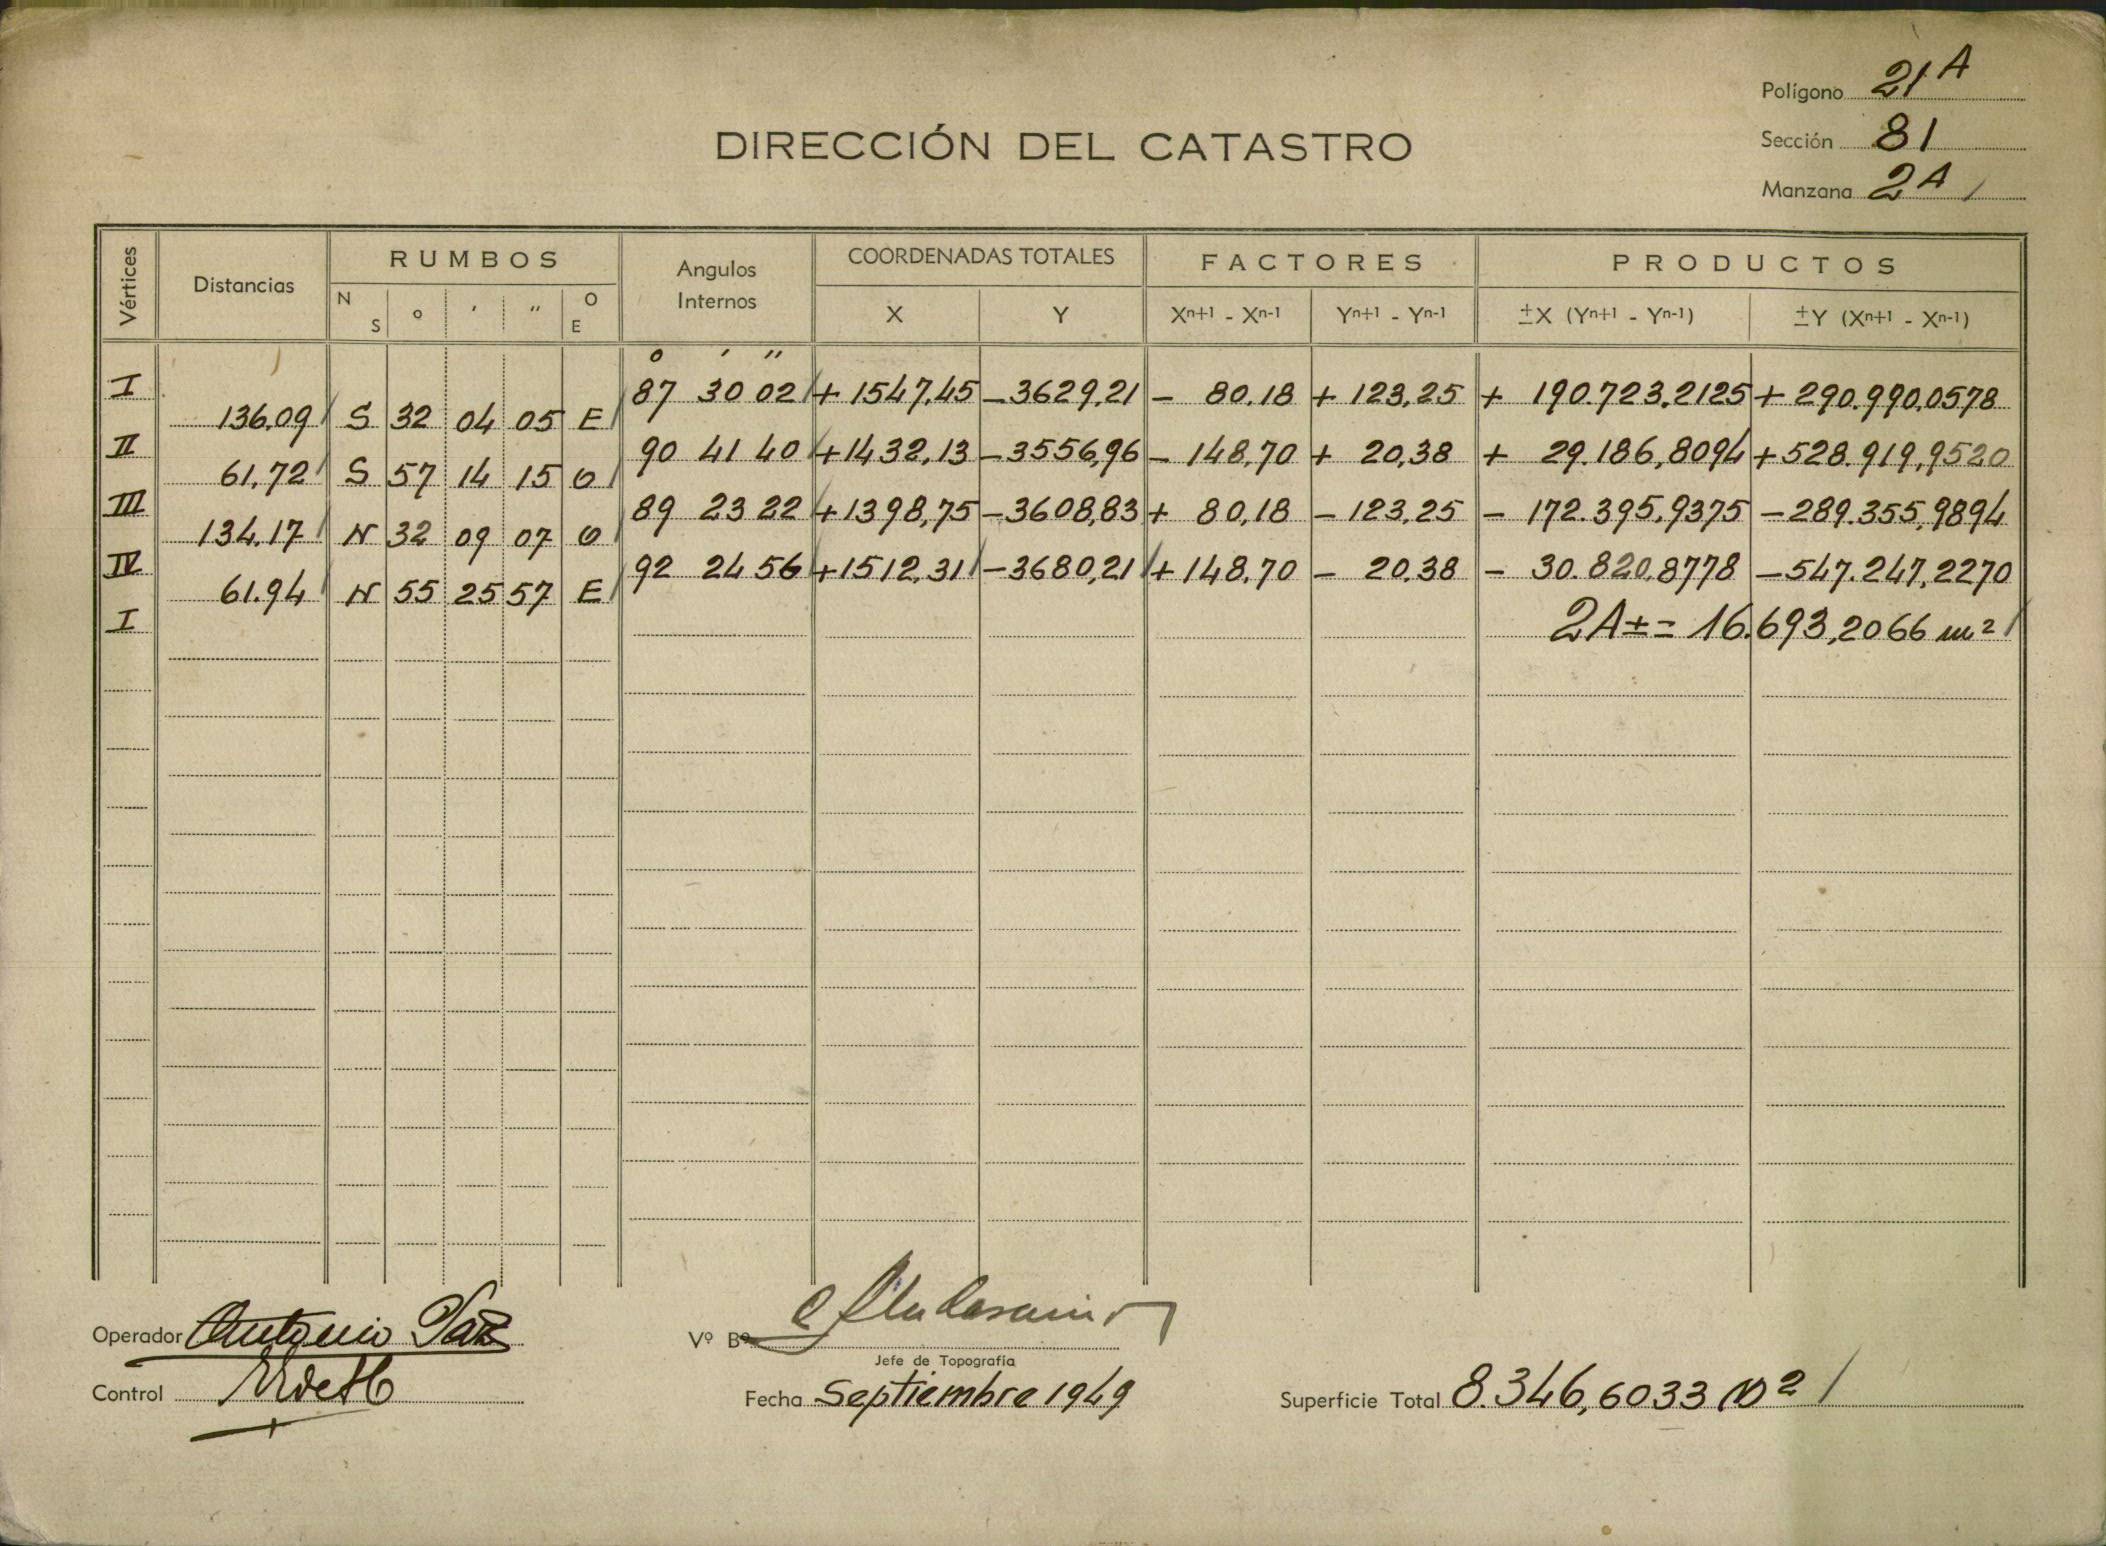 Polígono 21A
Sección 81
Manzana 2A
DIRECCIÓN DEL CATASTRO
Vértices Distancias RUMBOS Angulos Internos COORDENADAS TOTALES FACTORES PRODUCTOS
N S ° ' " O E X Y Xn+1 - Xn-1 Yn+1 - Yn-1 ±X (Yn+1 - Yn-1) ±Y (Xn+1 - Xn-1)
° ' "
I 87 30 02 +1547,45 -3629,21 - 80,18 + 123,25 + 190.723,2125 + 290.990,0578
136,09 S 32 04 05 E
II 90 41 40 +1432,13 -3556,96 - 148,70 + 20,38 + 29.186,8094 +528.919,9520
61,72 S 57 14 15 O
III 89 23 22 +1398,75 -3608,83 + 80,18 - 123,25 - 172.395,9375 -289.355,9894
134,17 N 32 09 07 O
IV 92 24 56 +1512,31 -3680,21 + 148,70 - 20,38 - 30.820,8778 -547.247,2270
61,94 N 55 25 57 E
I 2A± = 16.693,2066 m2
Operador Antonio Paz
Vº Bº
Jefe de Topografía
Control
Fecha Septiembre 1949
Superficie Total 8.346,6033 m2